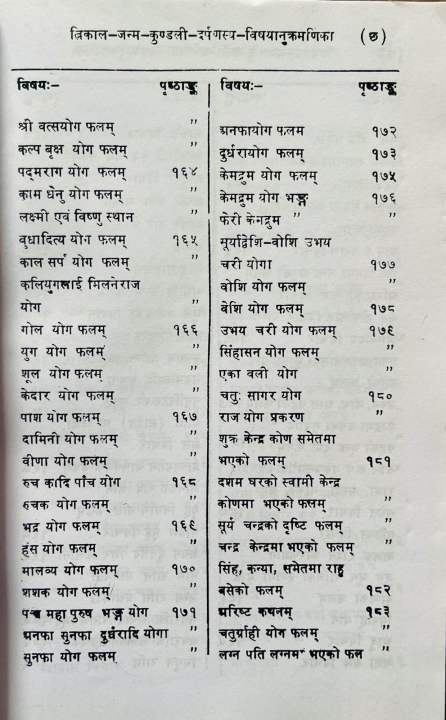 त्रिकाल-जन्म-कुण्डली-दर्पणस्य-विषयानुक्रमणिका (छ)
विषयः- पृष्ठाङ्क
श्री वत्सयोग फलम् ”
कल्प बृक्ष योग फलम् ”
पद्मराग योग फलम् १६४
काम धेनु योग फलम् ”
लक्ष्मी एवं विष्णु स्थान ”
बुधादित्य योग फलम् १६५
काल सर्प योग फलम् ”
कलियुगलाई मिलनेराज
योग ”
गोल योग फलम् १६६
युग योग फलम् ”
शूल योग फलम् ”
केदार योग फलम् ”
पाश योग फलम् १६७
दामिनी योग फलम् ”
वीणा योग फलम् ”
रुच कादि पाँच योग १६८
रुचक योग फलम् ”
भद्र योग फलम् १६९
हंस योग फलम् ”
मालव्य योग फलम् १७०
शशक योग फलम् ”
पञ्च महा पुरुष भङ्ग योग १७१
अनफा सुनफा दुर्धरादि योगा
सुनफा योग फलम् ”
विषयः- पृष्ठाङ्क
अनफायोग फलम १७२
दुर्धरायोग फलम् १७३
केमद्रुम योग फलम् १७५
केमद्रुम योग भङ्ग १७६
फेरी केमद्रुम ” ”
सूर्याद्वेशि-वोशि उभय
चरी योगा १७७
वोशि योग फलम् ”
वेशि योग फलम् १७८
उभय चरी योग फलम् १७९
सिंहासन योग फलम् ”
एका वली योग ”
चतुः सागर योग १८०
राज योग प्रकरण ”
शुक्र केन्द्र कोण समेतमा
भएको फलम् १८१
दशम घरको स्वामी केन्द्र
कोणमा भएको फलम् ”
सूर्य चन्द्रको दृष्टि फलम् ”
चन्द्र केन्द्रमा भएको फलम् ”
सिंह, कन्या, समेतमा राहु
बसेको फलम् १८२
अरिष्ट कथनम् १८३
चतुर्ग्राही योग फलम् ”
लग्न पति लग्नमा भएको फल ”